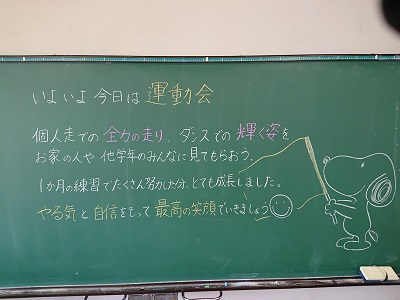 いよいよ今日は運動会
個人走での全力の走り、ダンスでの輝く姿を
お家の人や他学年のみんなに見てもらおう。
1か月の練習でたくさん努力した分、とても成長しました。
やる気と自信をもって最高の笑顔でいきましょう